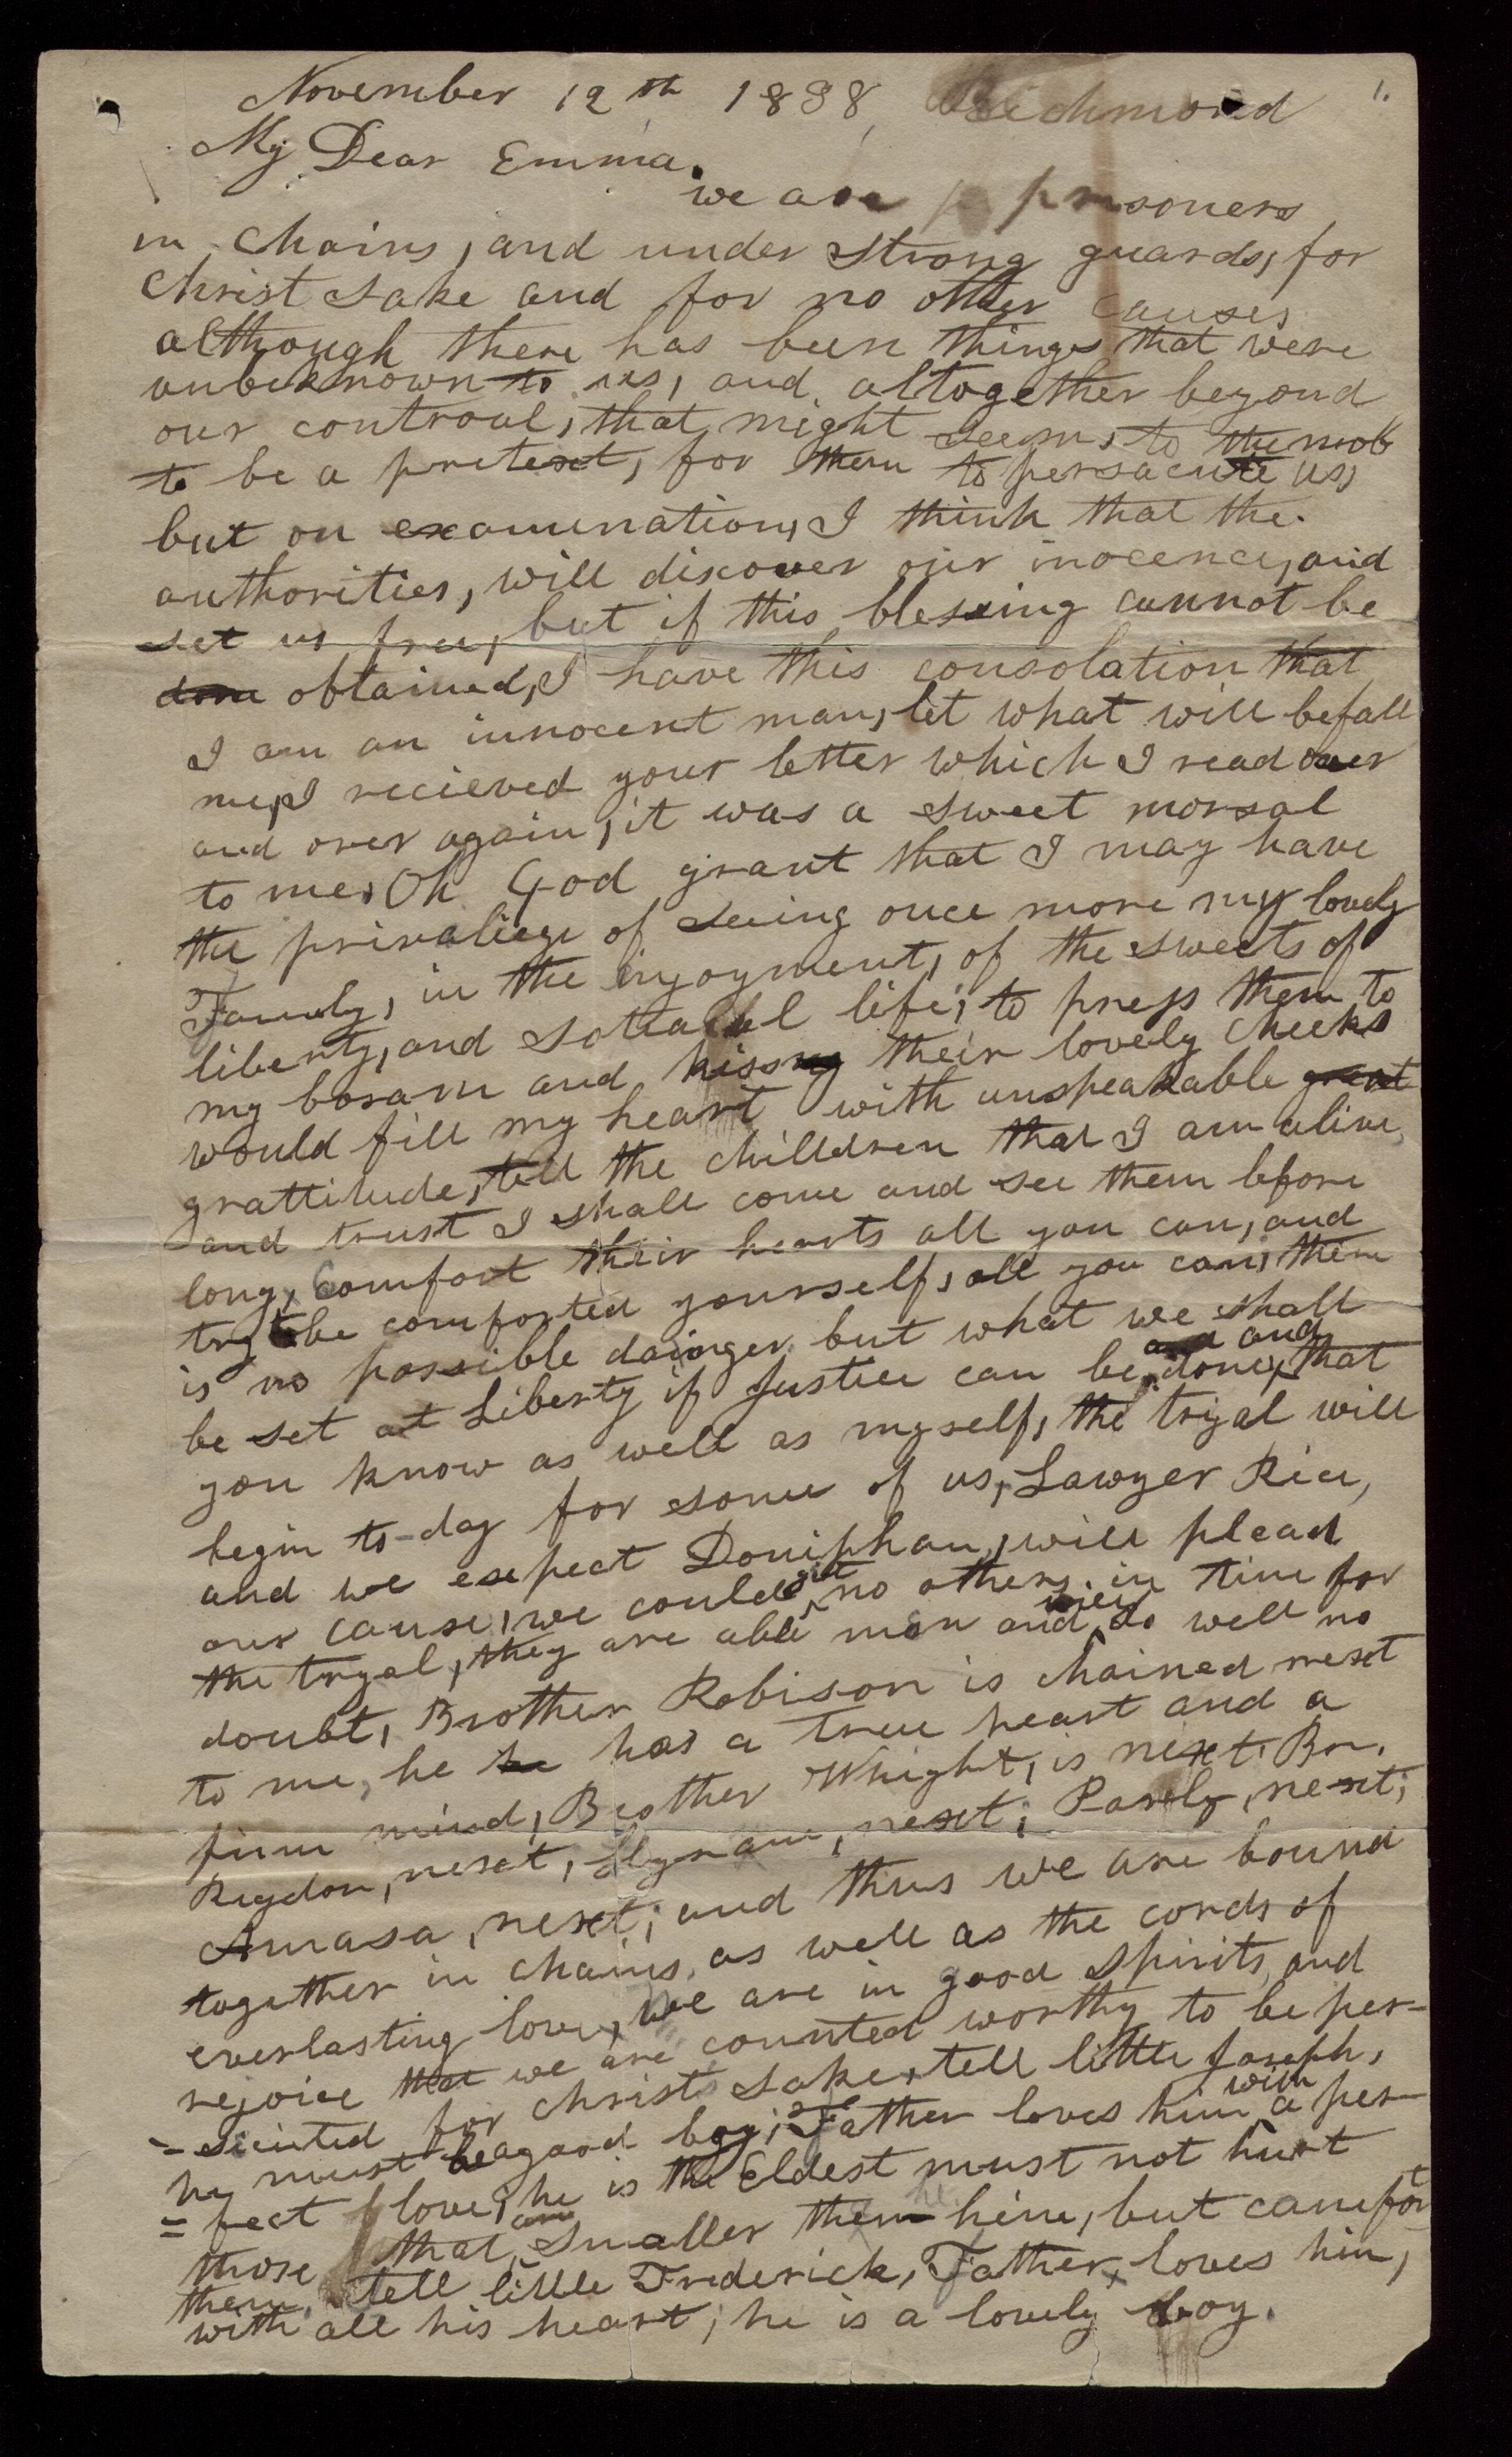 November 12th 1838, Richmond 1.
My Dear Emma.
we are prisoners
in chains, and under strong guards, for
Christ sake and for no other causes
although there has been things that were
unbeknown to us, and altogether beyond
our controal, that might seem, to the mob
to be a pretext, for them to persacute us,
but on examination, I think that the
authorities, will discover our inocence, and
set us free, but if this blessing cannot be
done obtained, I have this consolation that
I am an innocent man, let what will befall
me, I recieved your letter which I read over
and over again, it was a sweet morsal
to me, Oh God grant that I may have
the privaliege of seeing once more my lovely
Family, in the injoyment, of the sweets of
liberty, and sotiaial life, to press them to
my bosam and kissng their lovely cheeks
would fill my heart with unspeakable great
grattitude, tell the chilldren that I am alive
and trust I shall come and see them before
long, comfort their hearts all you can, and
try to be comforted yourself, all you can, there
is no possible dainger but what we shall
be set at Liberty if Justice can be done, and that
you know as well as myself, the tryal will
begin to-day for some of us, Lawyer Rice,
and we expect Doniphan, will plead
our cause, we could git no others in time for
the tryal, they are able men and will do well no
doubt, Brother Robison is chained next
to me, he he has a true heart and a
firm mind, Brother Whight, is next, Br.
Rigdon, next, Hyram, next, Parely, next,
Amasa, next, and thus we are bound
together in chains, as well as the cords of
everlasting love, we are in good spirits, and
rejoice that we are counted worthy to be per-
=secuted for christs sake, tell little Joseph,
he must be a good boy, Father loves him with a per-
=fect love, he is the Eldest must not hurt
those that are smaller then him, but comefort
them, tell little Frederick, Father, loves him,
with all his heart, he is a lovely boy.